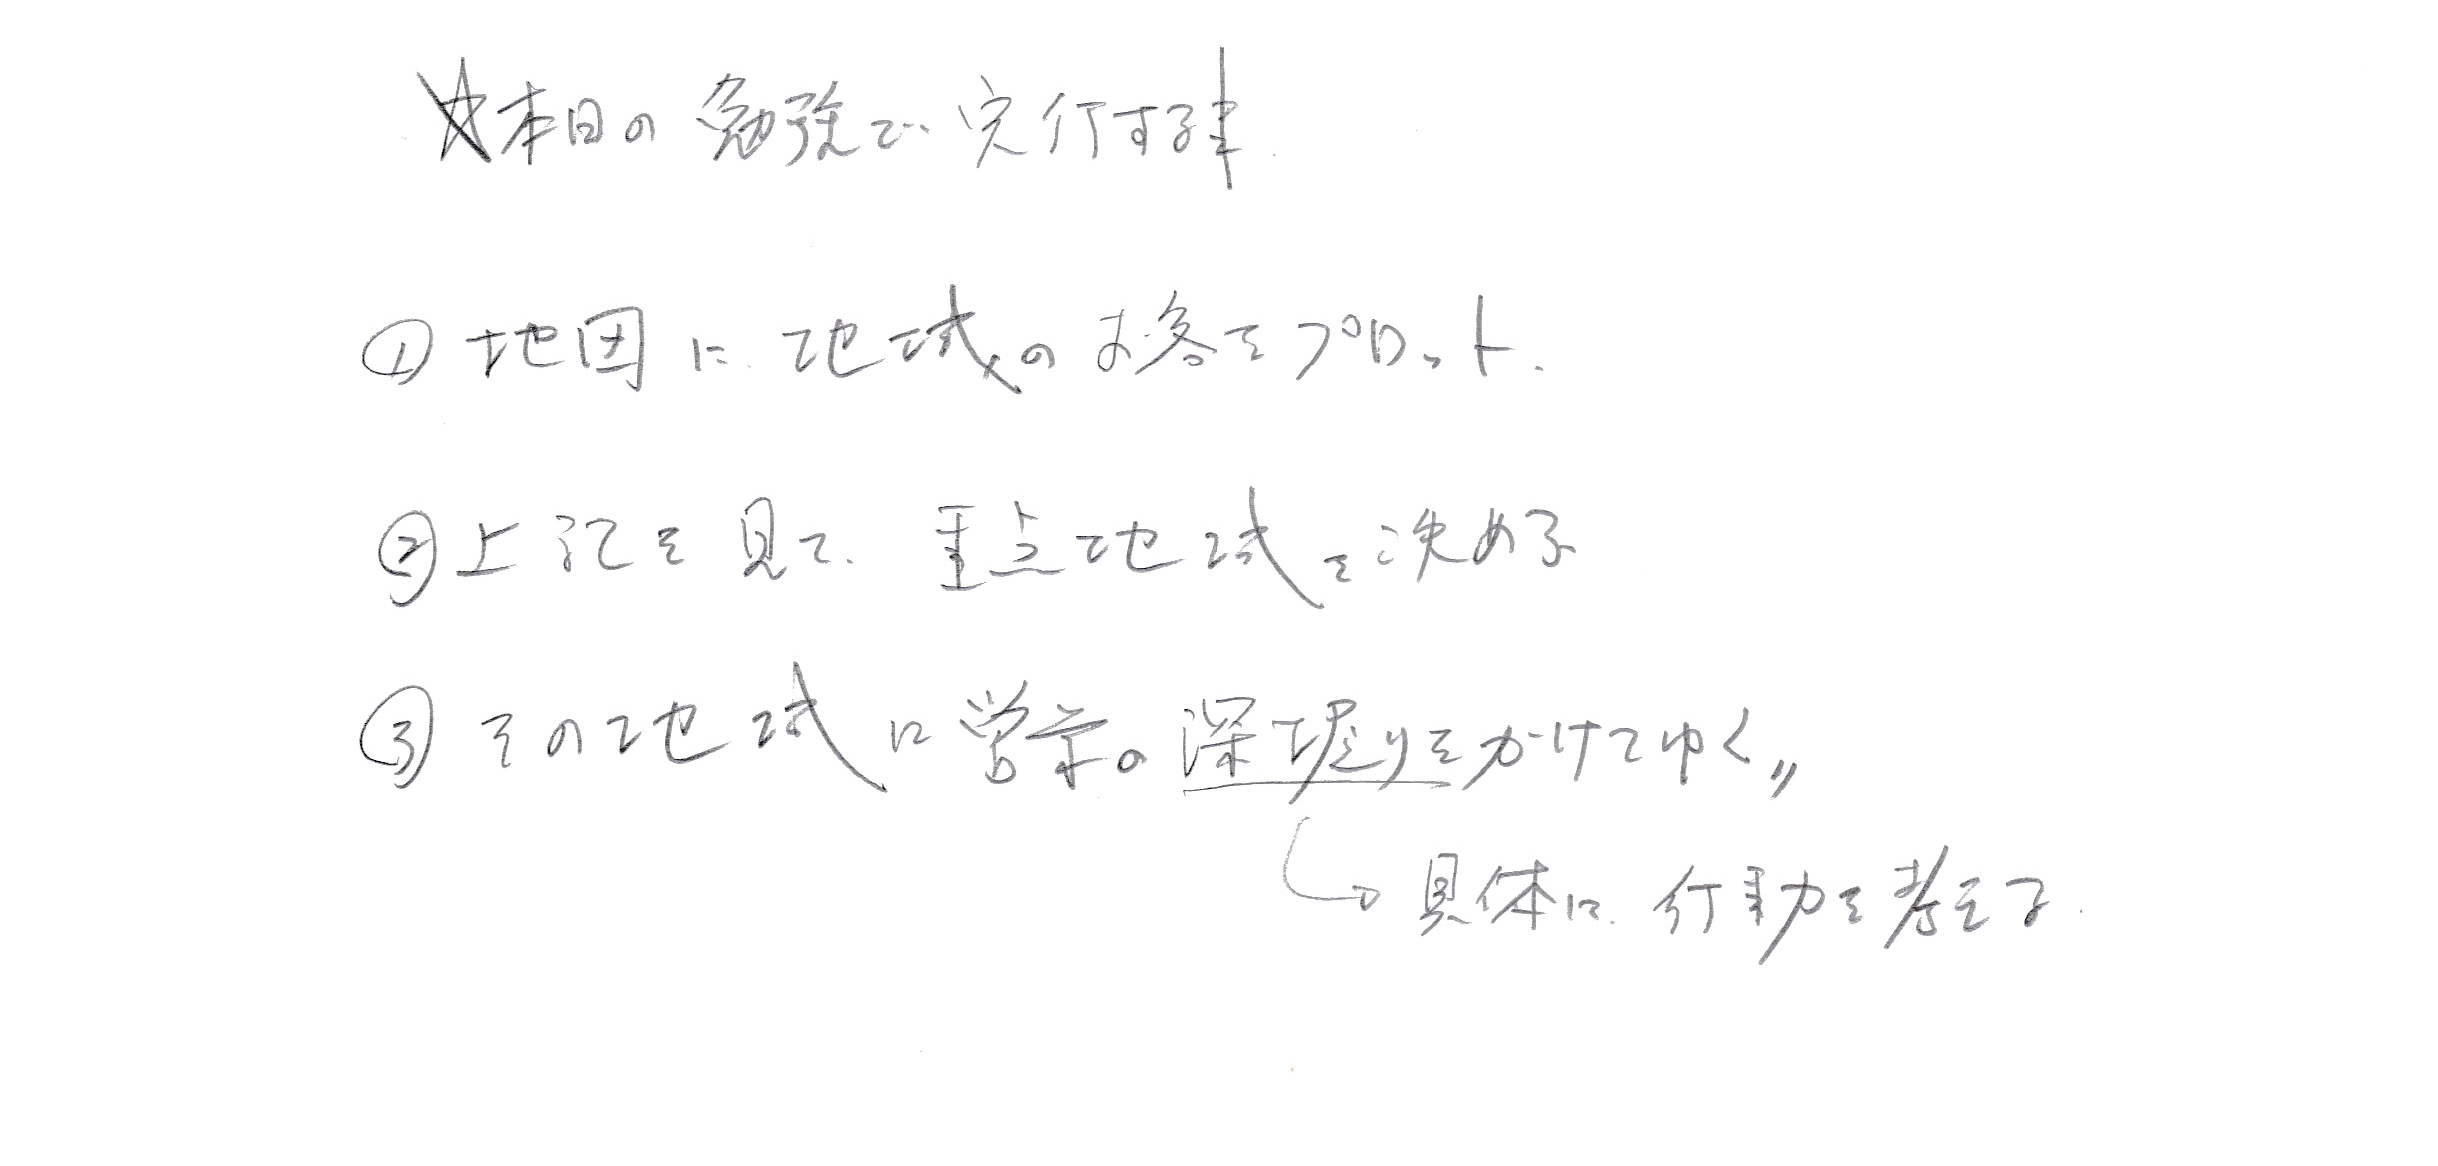 ☆本日の勉強で実行する事
① 地図に地域のお客をプロット.
② 上記を見て、重点地域を決める
③ その地域に営業の深堀りをかけてゆく〃
↳ 具体に行動を考える.